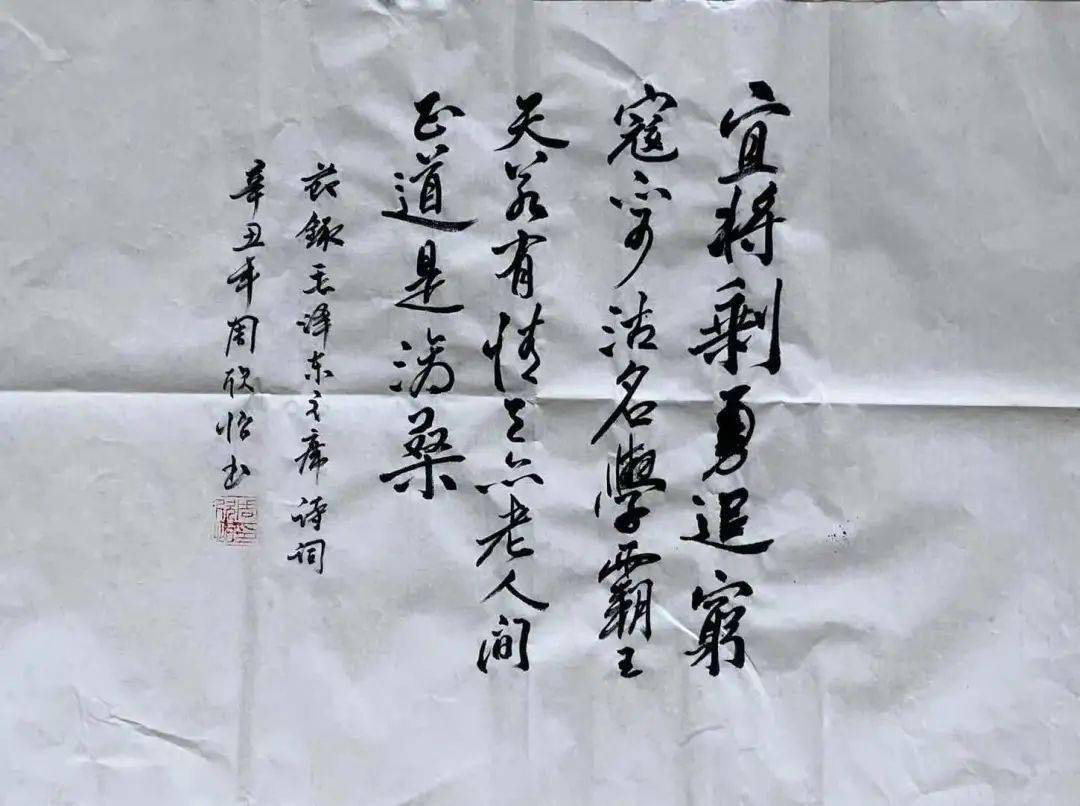 宜将剩勇追窮
寇不可沽名學霸王
天若有情天亦老人间
正道是滄桑
节錄毛泽东主席诗词
辛丑年周欣怡书